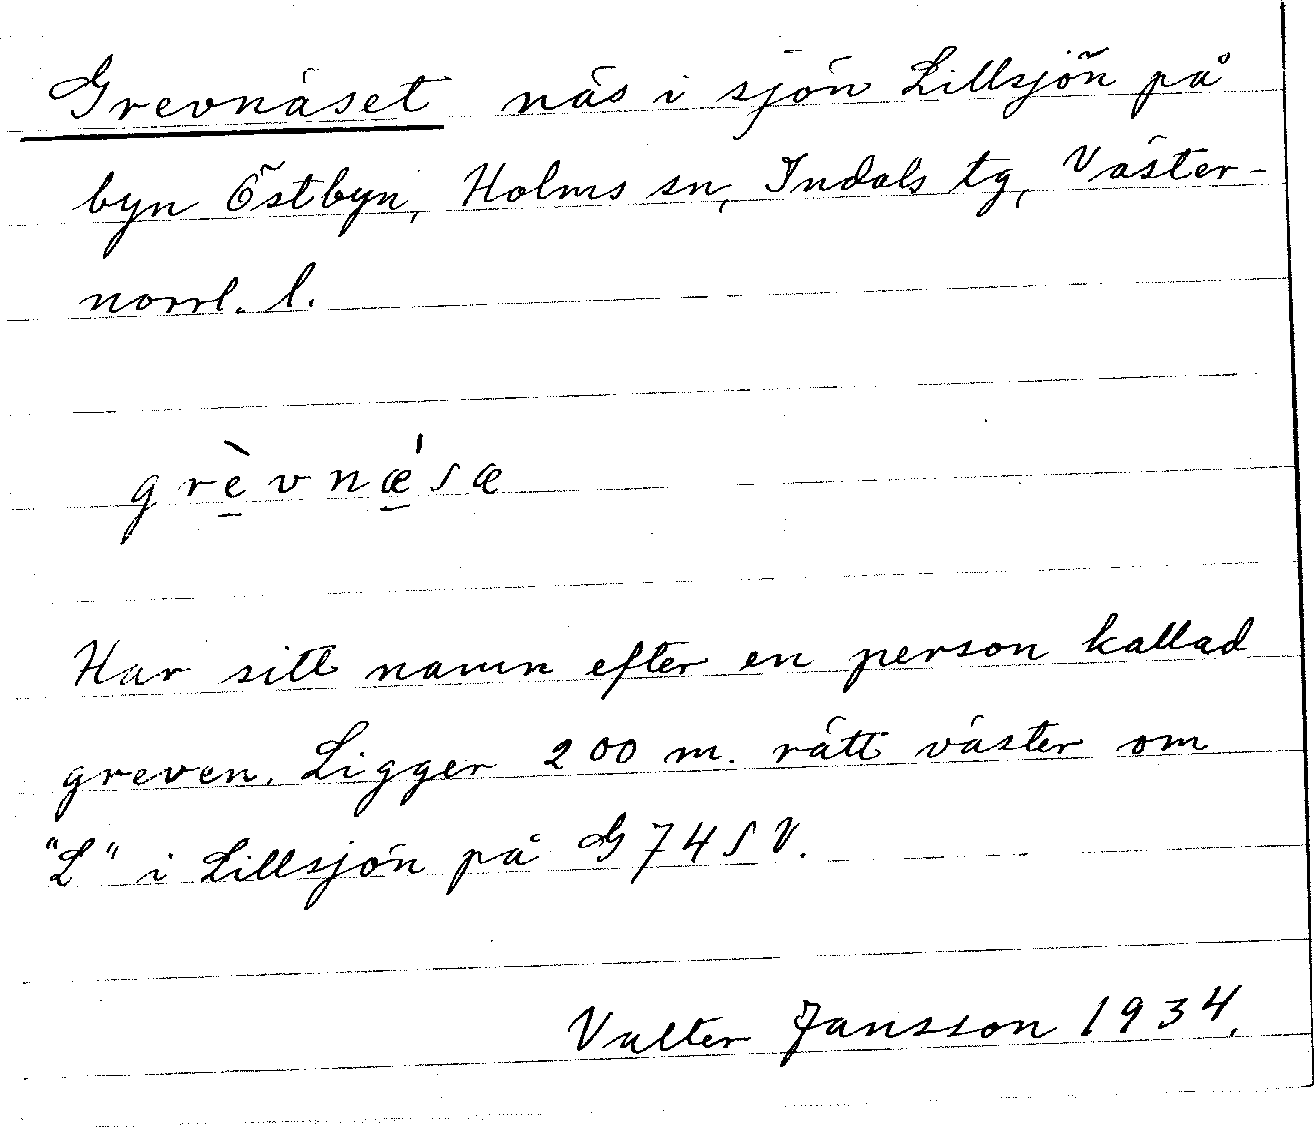 Grevnäset näs i sjön Lillsjön på
byn Östbyn, Holms sn, Indals tg, Väster-
norrl. l.
grè̱vnǽ̱sæ
Har sitt namn efter en person kallad
greven. Ligger 200 m. rätt väster om
"L" i Lillsjön på G74SV.
Valter Jansson 1934.